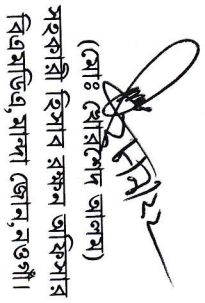 (মোঃ খোরশেদ আলম)
সহকারী হিসাব রক্ষন অফিসার
বিএমডিএ, মান্দা জোন, নওগাঁ।